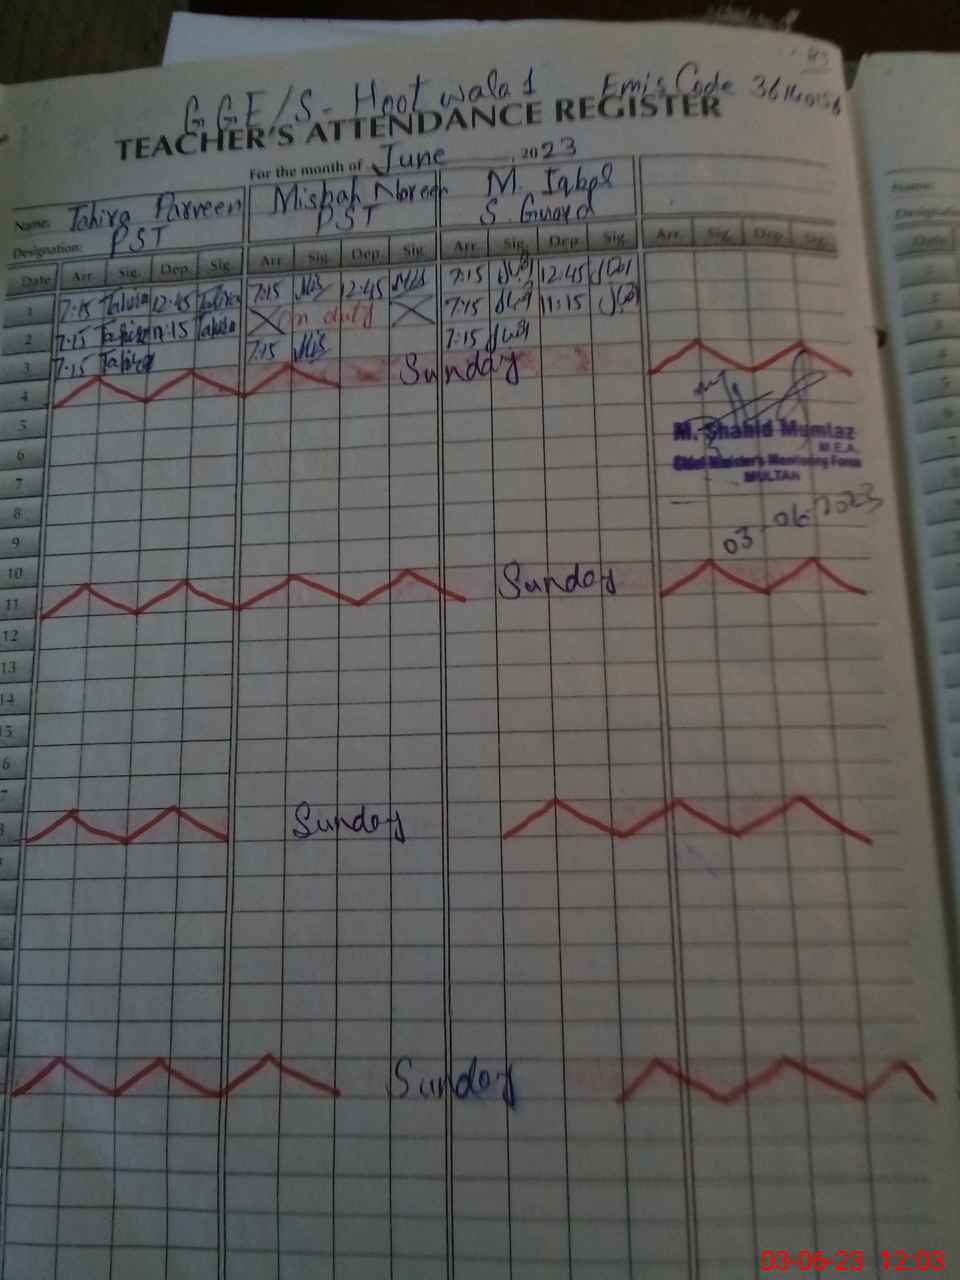 GGE/S - Hoot wala 1 Emis Code
TEACHER'S ATTENDANCE REGISTER
For the month of June, 2023
Name: Tahira Parveen Misbah Noreen M. Iqbal
Designation: PST PST S. Guard
Date Arr. Sig. Dep. Sig. Arr. Sig. Dep. Sig. Arr. Sig. Dep. Sig. Arr. Sig. Dep. Sig.
1 7:15 Tahira 12:45 Tahira 7:15 Mis 12:45 Mis 7:15 12:45
2 7:15 Tahira 11:15 Tahira On duty 7:15 11:15
3 7:15 Tahira 7:15 Mis 7:15
4 Sunday
5
M. Shahid Mumtaz
6
M.E.A.
Chief Minister's Monitoring Force
7
MULTAN
8
03-06-2023
9
10
11 Sunday
12
13
14
15
Sunday
Sunday
03-06-23 12:03